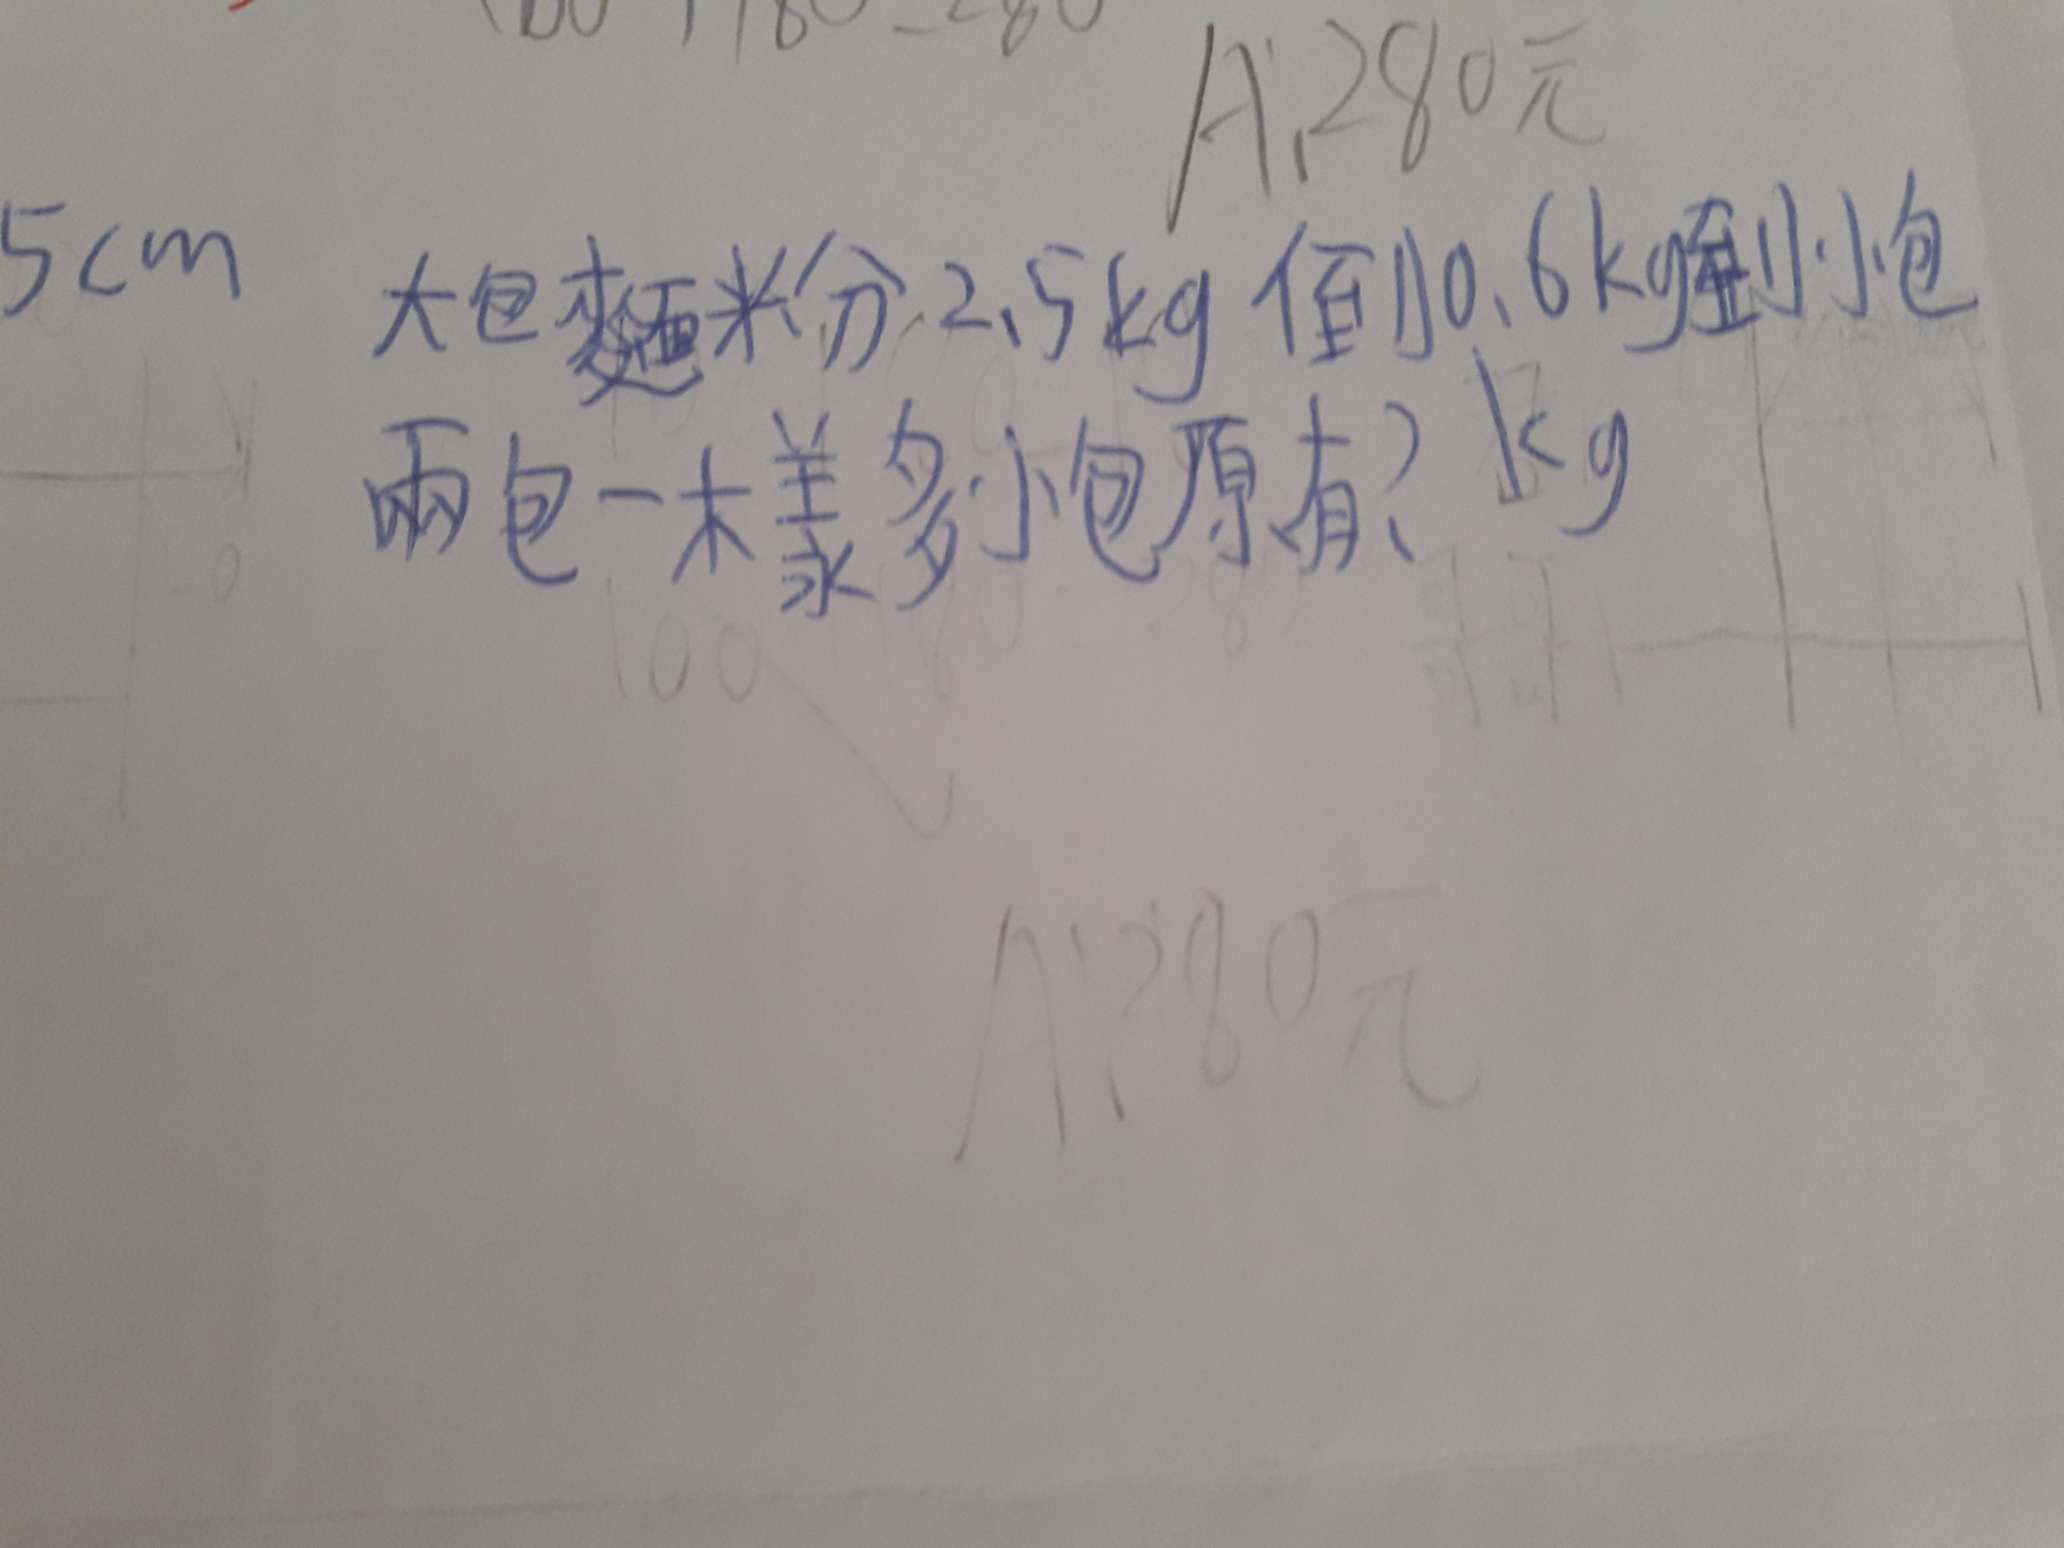 A:280元
5cm
大包麵粉2.5kg倒0.6kg到小包
兩包一樣多小包原有?kg
100
A:280元